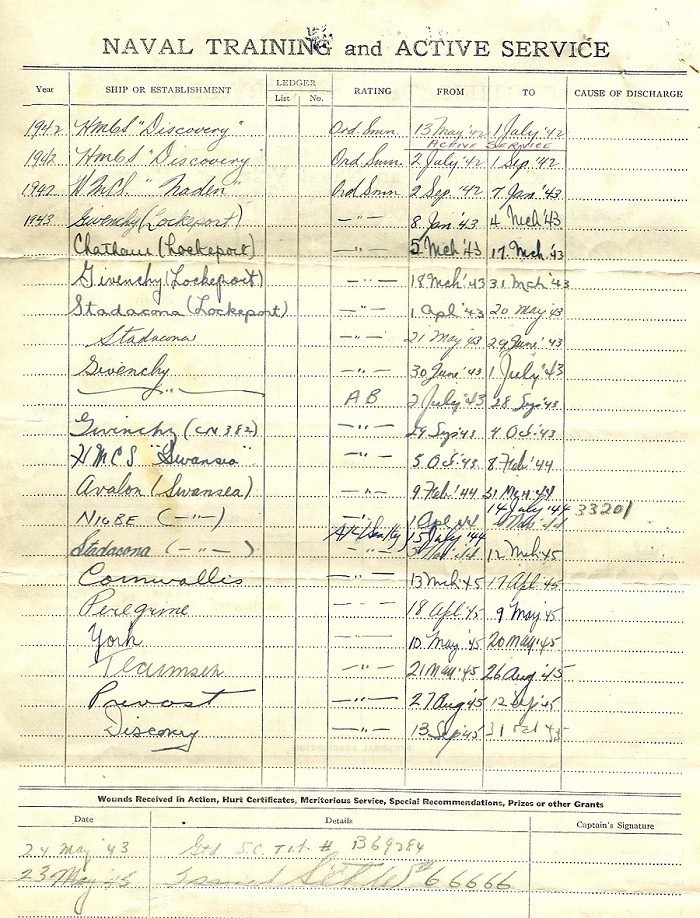 NAVAL TRAINING and ACTIVE SERVICE
Year SHIP OR ESTABLISHMENT LEDGER RATING FROM TO CAUSE OF DISCHARGE
List No.
1942 HMCS "Discovery" Ord. Smn. 13 May '42 1 July '42
ACTIVE SERVICE
1942 HMCS "Discovery Ord Smn. 2 July '42 1 Sep. '42
1942 HMCS. "Naden" Ord Smn 2 Sep. '42 7 Jan '43
1943 Givenchy (Lockeport) —"— 8 Jan '43 4 Mch '43
Chatham (Lockeport) —"— 5 Mch '43 17 Mch. '43
Givenchy (Lockeport) —"— 18 Mch '43 31 Mch '43
Stadacona (Lockeport) —"— 1 Apl '43 20 May 43
Stadacona —"— 21 May 43 29 June '43
Givenchy —"— 30 June '43 1 July '43
—"— AB 2 July '43 28 Sep '43
Givinchy (CN 382) —"— 29 Sep 43 4 Oct 43
HMCS "Swansea" —"— 5 Oct. 43 8 Feb '44
Avalon (Swansea) —"— 9 Feb '44 31 Mch 44
14 July '44
NIOBE (—"—) 1 Apl 44 33201
15 July '44
Stadacona (—"—) —"— 12 Mch 45
Cornwallis —"— 13 Mch 45 17 Apl. 45
Peregrine —"— 18 Apl 45 9 May 45
York —"— 10 May '45 20 May 45
Tecumseh —"— 21 May 45 26 Aug '45
Prevost —"— 27 Aug 45 12 Sep '45
Discovery —"— 13 Sep 45 31 Oct 45
Wounds Received in Action, Hurt Certificates, Meritorious Service, Special Recommendations, Prizes or other Grants
Date Details Captain's Signature
24 May '43 Gtd S.C. T.1.1. # B69284
23 May 45 Issued 66666